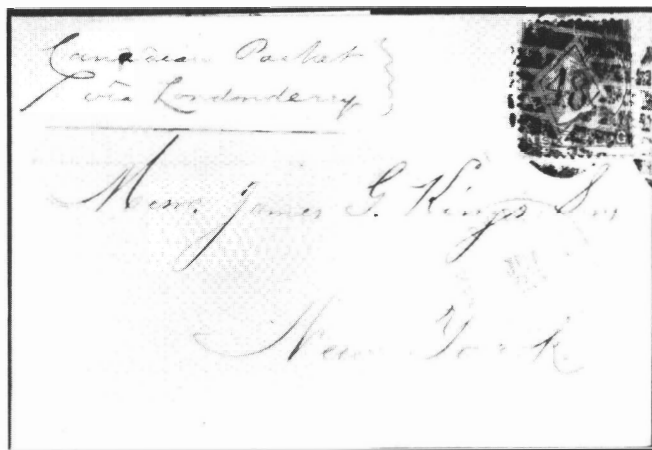 Canadian Packet
via Londonderry
48
Messrs. James G. King's Sons
New York